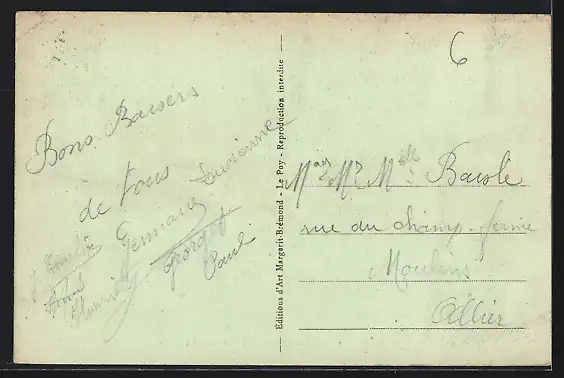 6
Bons Baisers
de tous
Suzanne
Germaine
Georges
Paul
Éditions d'Art Margerit-Brémond - Le Puy - Reproduction interdite
Mr Melle
rue du champ-
Moulins
Allier